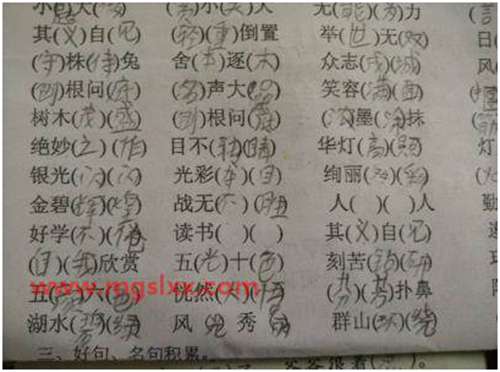 小(题)大( ) 小( )大( )人 无(能)(为)力 (言
其(义)自(见) (轻)(重)倒置 举(世)无(双) 日(
(守)株(待)兔 舍(本)逐(末) 众志(成)(城) 风
(刨)根问(底) (名)声大(噪) 笑容(满)(面)
树木(茂)(盛) (刨)根问(底) (浓)墨( )抹
绝妙(之)(作) 目不(转)(睛) 华灯(高)(照) 灯
银光(闪)(闪) 光彩(夺)(目) 绚丽(多)(彩)
金碧(辉)(煌) 战无(不)(胜) 人( )( )人 勤
好学(不)(倦) 读书( )( ) 其(义)自(见)
(自)(我)欣赏 五(光)十(色) 刻苦(钻)(研)
www.mgslxx.com
五(颜)六(色) 恍然(大)(悟) (芬)(芳)扑鼻
湖水(碧)(绿) 风 光 秀 丽 群山(环)(绕)
三、好句、名句积累。
爷爷很着( )。